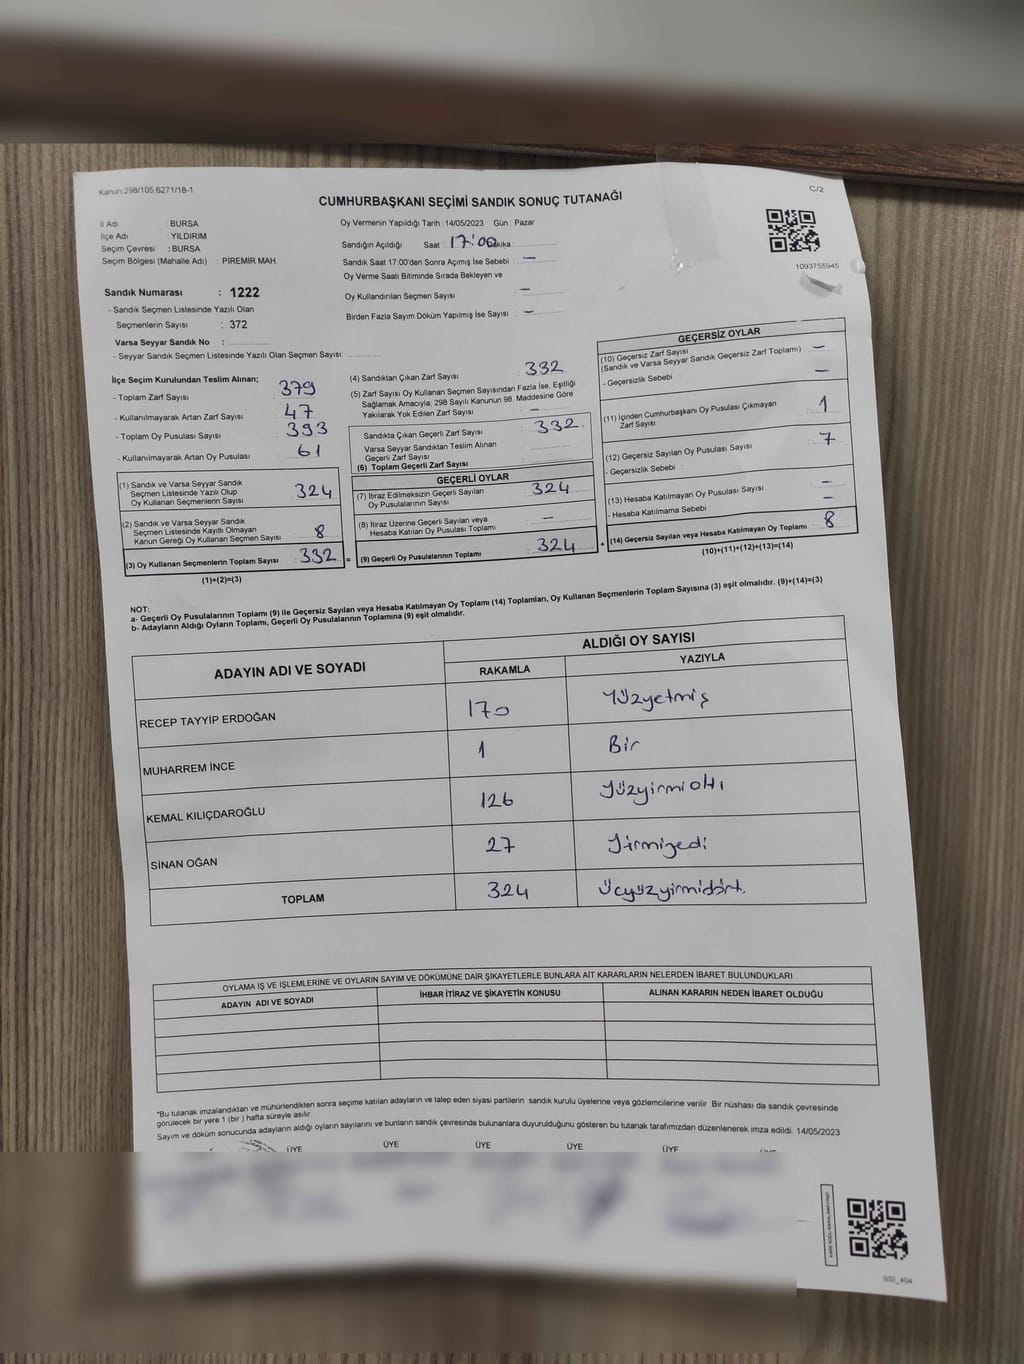 Kanun:298/105;6271/18-1
C/2
CUMHURBAŞKANI SEÇİMİ SANDIK SONUÇ TUTANAĞI
İl Adı : BURSA
İlçe Adı : YILDIRIM
Seçim Çevresi : BURSA
Seçim Bölgesi (Mahalle Adı) : PİREMİR MAH.
Oy Vermenin Yapıldığı Tarih :14/05/2023 Gün : Pazar
Sandığın Açıldığı Saat : 17:00 Dakika :
Sandık Saat 17:00'den Sonra Açımış İse Sebebi : —
Oy Verme Saati Bitiminde Sırada Bekleyen ve
Oy Kullandırılan Seçmen Sayısı : —
Birden Fazla Sayım Döküm Yapılmış İse Sayısı : —
1093755945
Sandık Numarası : 1222
- Sandık Seçmen Listesinde Yazılı Olan
Seçmenlerin Sayısı : 372
Varsa Seyyar Sandık No :
- Seyyar Sandık Seçmen Listesinde Yazılı Olan Seçmen Sayısı:
İlçe Seçim Kurulundan Teslim Alınan;
- Toplam Zarf Sayısı : 379
- Kullanılmayarak Artan Zarf Sayısı : 47
- Toplam Oy Pusulası Sayısı : 393
- Kullanılmayarak Artan Oy Pusulası : 61
(1) Sandık ve Varsa Seyyar Sandık
Seçmen Listesinde Yazılı Olup
Oy Kullanan Seçmenlerin Sayısı : 324
(2) Sandık ve Varsa Seyyar Sandık
Seçmen Listesinde Kayıtlı Olmayan
Kanun Gereği Oy Kullanan Seçmen Sayısı : 8
(3) Oy Kullanan Seçmenlerin Toplam Sayısı : 332
(1)+(2)=(3)
(4) Sandıktan Çıkan Zarf Sayısı : 332
(5) Zarf Sayısı Oy Kullanan Seçmen Sayısından Fazla İse, Eşitliği
Sağlamak Amacıyla; 298 Sayılı Kanunun 98. Maddesine Göre
Yakılarak Yok Edilen Zarf Sayısı : —
Sandıkta Çıkan Geçerli Zarf Sayısı : 332.
Varsa Seyyar Sandıktan Teslim Alınan
Geçerli Zarf Sayısı :
(6) Toplam Geçerli Zarf Sayısı
GEÇERLİ OYLAR
(7) İtiraz Edilmeksizin Geçerli Sayılan
Oy Pusulalarının Sayısı : 324
(8) İtiraz Üzerine Geçerli Sayılan veya
Hesaba Katılan Oy Pusulası Toplamı : —
= (9) Geçerli Oy Pusulalarının Toplamı : 324
GEÇERSİZ OYLAR
(10) Geçersiz Zarf Sayısı
(Sandık ve Varsa Seyyar Sandık Geçersiz Zarf Toplamı) : —
- Geçersizlik Sebebi : —
(11) İçinden Cumhurbaşkanı Oy Pusulası Çıkmayan
Zarf Sayısı : 1
(12) Geçersiz Sayılan Oy Pusulası Sayısı : 7
- Geçersizlik Sebebi :
(13) Hesaba Katılmayan Oy Pusulası Sayısı : —
- Hesaba Katılmama Sebebi : —
+ (14) Geçersiz Sayılan veya Hesaba Katılmayan Oy Toplamı : 8
(10)+(11)+(12)+(13)=(14)
NOT:
a- Geçerli Oy Pusulalarının Toplamı (9) ile Geçersiz Sayılan veya Hesaba Katılmayan Oy Toplamı (14) Toplamları, Oy Kullanan Seçmenlerin Toplam Sayısına (3) eşit olmalıdır. (9)+(14)=(3)
b- Adayların Aldığı Oyların Toplamı, Geçerli Oy Pusulalarının Toplamına (9) eşit olmalıdır.
ADAYIN ADI VE SOYADI
ALDIĞI OY SAYISI
RAKAMLA YAZIYLA
RECEP TAYYİP ERDOĞAN 170 Yüzyetmiş
MUHARREM İNCE 1 Bir
KEMAL KILIÇDAROĞLU 126 Yüzyirmialtı
SİNAN OĞAN 27 Yirmiyedi
TOPLAM 324 Üçyüzyirmidört.
OYLAMA İŞ VE İŞLEMLERİNE VE OYLARIN SAYIM VE DÖKÜMÜNE DAİR ŞİKAYETLERLE BUNLARA AİT KARARLARIN NELERDEN İBARET BULUNDUKLARI
ADAYIN ADI VE SOYADI İHBAR İTİRAZ VE ŞİKAYETİN KONUSU ALINAN KARARIN NEDEN İBARET OLDUĞU
*Bu tutanak imzalandıktan ve mühürlendikten sonra seçime katılan adayların ve talep eden siyasi partilerin sandık kurulu üyelerine veya gözlemcilerine verilir. Bir nüshası da sandık çevresinde
görülecek bir yere 1 (bir) hafta süreyle asılır.
Sayım ve döküm sonucunda adayların aldığı oyların sayılarını ve bunların sandık çevresinde bulunanlara duyurulduğunu gösteren bu tutanak tarafımızdan düzenlenerek imza edildi. 14/05/2023
ÜYE ÜYE ÜYE ÜYE ÜYE ÜYE
SSI_404